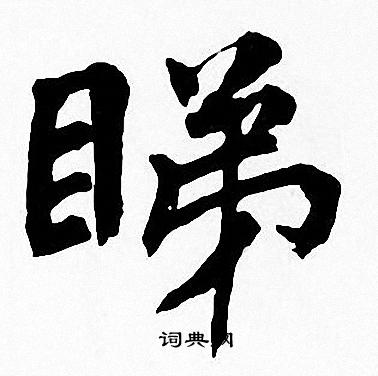 睇
词典网